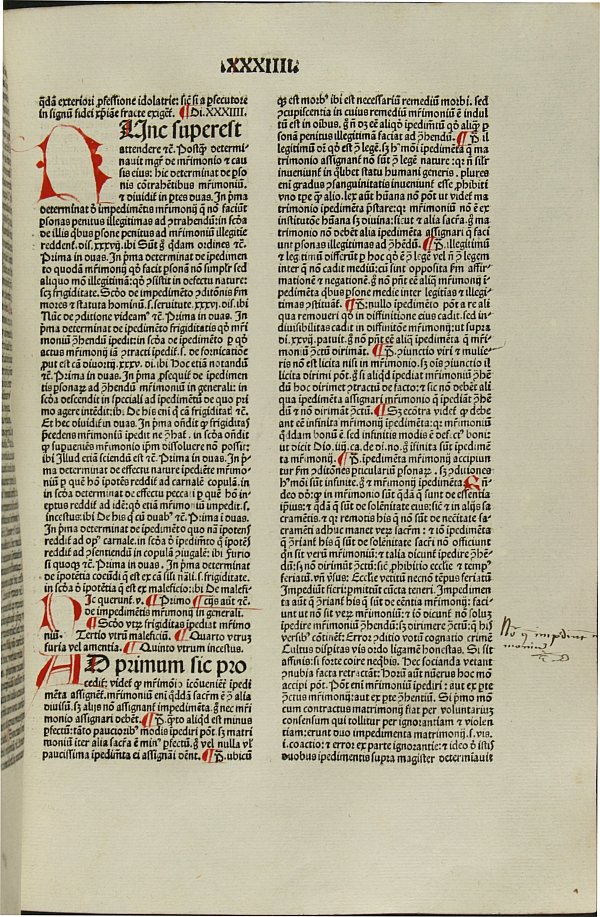 XXXIIII
qdã exteriori ꝓfessione idolatrie: sic si a ꝑsecutore
in signũ fidei xp̃iane fracte exiget̃. ¶ Di. XXXIIII.
Hinc superest
attendere ⁊c̃. Postq̃ᷓ determi-
nauit mgr̃ de mr̃imonio ⁊ cau
sis eius: hic determinat de ꝑso
nis cõtrahẽtibus mr̃imoniũ.
⁊ diuidit̃ in ptes duas. In pͥma
determinat õ impedimẽtis mr̃imonij q̃ nõ faciũt
ꝑsonas penitus illegitimas ad ꝯtrahendũ: in scđa
de illis q̃bus ꝑsone penitus ad mr̃imoniũ illegitie
reddent̃. dis. xxxvij. ibi Sũt q̃ꝫ qdam ordines ⁊c̃.
Prima in duas. In pͥma determinat de ipedimen
to quodã mr̃imonij qđ facit ꝑsonã nõ simplr̃ sed
aliquo mõ illegitimã: qđ ꝯsistit in defectu nature:
scꝫ frigiditate. Scđo de impedimẽto ꝯditõnis fm
mores ⁊ statuta hominũ. s. seruitute. xxxvj. dis. ibi
Nũc de ꝯditione videam⁹ ⁊c̃. Prima in duas. In
pͥma determinat de impedimẽto frigiditatis qđ mr̃i
moniũ ꝯ̃hendũ ipedit: in scđa de ipedimẽto ꝑ qđ
actus mr̃imonij iã ꝯtracti ipedit̃. s. de fornicatõe
put est cã diuortij. xxxv. di. ibi Hoc etiã notandũ
⁊c̃. Prima in duas. In pͥma ꝓsequit̃ de ipedimẽ
tis ꝑsonaꝝ ad ꝯ̃hendũ mr̃imoniũ in generali: in
scđa descendit in speciali ad ipedimẽtũ de quo pri
mo agere intẽdit: ibi De his eni q̃ cã frigiditaẽ ⁊c̃.
Et hec diuidit̃ in duas. In pͥma oñdit q̃ꝫ frigiditas
p̃cedens mr̃imoniũ ipedit ne ꝯ̃hat̃. in scđa oñdit
q̃ꝫ supueniẽs mr̃imonio ip̃m dissoluere nõ possit:
ibi Illud etiã sciendã est ⁊c̃. Prima in duas. In pͥ
ma determinat de effectu nature ipediẽte mr̃imo
niũ ꝑ quẽ hõ ipotẽs reddit̃ ad carnalẽ copulã. in
in scđa determinat de effectu peccati ꝑ quẽ hõ in
eptus reddit̃ ad idẽ: qđ etiã mr̃imoniũ impedit. s.
incestus: ibi De his q̃ cũ duab⁹ ⁊c̃. Prima i duas.
In pͥma determinat de ipedimẽto quo nõ ipotens
reddit̃ ad op⁹ carnale. in scđa õ ipedim̃to q̃ ipotẽs
reddit̃ ad ꝯsentiendũ in copulã ꝯiugalẽ: ibi Furio
si quoqꝫ ⁊c̃. Prima in duas. In pͥma determinat
de ipotẽtia coeũdi q̃ est ex cã sili nãli. s. frigiditate.
in scđa õ ipotẽtia q̃ est ex maleficio: ibi De malefi-
Hic querunt̃. v. ¶ Primo [cijs aũt ⁊c̃.
de impedimẽtis mr̃imonij in generali.
¶ Scđo vtrꝫ frigiditas ipediat mr̃imo
niũ. ¶ Tertio vtrũ maleficiũ. ¶ Quarto vtruꝫ
furia vel amentia. ¶ Quinto vtrum incestus.
AD primum sic pro
cedit̃: videt̃ q̃ꝫ mr̃imõio icõueniẽt ipedi
mẽta assignẽt̃. mr̃imoniũ eni qddã sacr̃m ẽ ꝯ̃ alia
diuisũ. sꝫ alijs nõ assignant̃ impedimẽta. g̃ nec mr̃i
monio assignari debẽt. ¶ P̃. q̃to aliqđ est minus
pfectũ: tãto paucioribꝰ modis ipediri põt. sꝫ matri
moniũ iter alia sacr̃a ẽ minꝰ pfectũ. g̃ vel nulla vl̃
paucissima ipedim̃ta ei assignãi dẽnt. ¶ P̃. vbicũ
qꝫ est morbꝰ ibi est necessariũ remediũ morbi. sed
ꝯcupiscentia in cuius remediũ mr̃imoniũ ẽ indul
tũ est in oĩbus. g̃ ñ dꝫ eẽ aliqđ ipedim̃tũ qđ aliq̃ ꝑ
sonã penitus illegitimã faciat ad ꝯ̃hendũ. ¶ P̃. il
legitimũ dr̃ qđ est ꝯ̃ legẽ. sꝫ hmõi ipedimẽta q̃ ma
trimonio assignant̃ nõ sũt ꝯ̃ legẽ nature: qꝛ ñ silr̃
inueniunt̃ in q̃libet statu humani generis. plures
eni gradus ꝯsanguinitatis inueniunt̃ esse ꝓhibiti
vno tꝑe q̃ꝫ alio. lex aũt hũana nõ põt vt videt̃ ma
trimonio ipedimẽta p̃stare: qꝛ mr̃imoniũ nõ ẽ ex
institutõe hũana sꝫ diuina: sicut ⁊ alia sacr̃a. g̃ ma
trimonio nõ debẽt alia ipedimẽta assignari q̃ faci
unt ꝑsonas illegitimas ad ꝯ̃hẽdũ. ¶ P̃. illegitimũ
⁊ legitimũ differũt ꝑ hoc qđ ẽ ꝯ̃ legẽ vel ñ ꝯ̃ legem
inter q̃ nõ cadit mediũ: cũ sint opposita fm affir-
mationẽ ⁊ negationẽ. g̃ nõ pñt eẽ aliq̃ mr̃imonij i
pedimẽta q̃bus ꝑsone medie inter legitias ⁊ illegi-
timas ꝯstituãt̃. ¶ P̃. nullo ipedimẽto põt a re ali
qua remoueri qđ in diffinitione eius cadit. sed in-
diuisibilitas cadit in diffinitõe mr̃imonij: vt supra
di. xxvij. patuit. g̃ nõ pñt eẽ aliq̃ ipedimẽta q̃ mr̃i-
moniũ ꝯ̃ctũ dirimãt. ¶ P̃. ꝯiunctio viri ⁊ mulie-
ris nõ est licita nisi in mr̃imonio. sꝫ oĩs ꝯiunctio il
licita dirimi põt. g̃ si aliqđ ipediat mr̃imoniũ ꝯ̃hẽ
dũ hoc dirimet ꝯtractũ de facto: ⁊ sic nõ debẽt ali
qua ipedimẽta assignari mr̃imonio q̃ ipediãt ꝯ̃hẽ
dũ ⁊ nõ dirimãt ꝯ̃ctũ. ¶ Sꝫ ecõtra videt̃ q̃ꝫ debe
ant eẽ infinita mr̃imonij ipedimẽta: qꝛ mr̃imoniũ
qddam bonũ ẽ. sed infinitis modis ẽ def. ct⁹ boni:
vt dicit Dio. iiij. ca. de di. no. g̃ ifinita sũt ipedimẽ
ta mr̃imonij. ¶ P̃. ipedimẽta mr̃imonij accipiun
tur fm ꝯditõnes pticulariũ ꝑsonaꝝ. sꝫ ꝯditiones
hmõi sũt infinite. g̃ ⁊ mr̃imonij ipedimẽta. ¶ Rñ-
deo dõꝫ: q̃ꝫ in mr̃imonio sũt qdã q̃ sunt de essentia
ipiꝰ: ⁊ qdã q̃ sut de solẽnitate eius: sic̃ ⁊ in alijs sa
cramẽtis. ⁊ qꝛ remotis his q̃ nõ sut de necitate sa-
cramẽti adhuc manet veꝝ sacr̃m: ꝉ iõ ipedimẽta
q̃ ꝯ̃riant̃ his q̃ sut de solẽnitate sacri nõ officiunt
qñ sit verũ mr̃imoniũ: ⁊ talia dicunt̃ ipedire ꝯ̃hẽ-
dũ: sꝫ nõ dirimũt ꝯ̃ctũ: sic̃ ꝓhibitio ecclie ⁊ temp⁹
feriatũ. vñ ꝟsus: Ecclie vetitũ necnõ tẽpus feriatũ
Impediũt fieri: ꝑmittũt iũcta teneri. Impedimen
ta aũt q̃ ꝯ̃riant̃ his q̃ sut de eẽntia mr̃imonij: faci
unt vt nõ sit verꝫ mr̃imoniũ: ⁊ iõ dicunt̃ nõ soluꝫ
ipedire mr̃imoniũ ꝯ̃hendũ: sꝫ dirimere ꝯ̃ctũ: q̃ his
ꝟsibꝰ cõtinẽt̃: Error ꝯditio votũ cognatio crimẽ
Cultus dispitas vis ordo ligamẽ honestas. Si sit
affinis: si forte coire neq̃bis. Hec socianda vetant
ꝯnubia facta retractãt: Horũ aũt nũerus hoc mõ
accipi põt. Põt eni mr̃imoniũ ipediri: aut ex pte
ꝯ̃ctus mr̃imonij: aut ex pte ꝯ̃hentiũ. Si pͥmo mõ
cum contractus matrimonij fiat per voluntariuꝫ
consensum qui tollitur per ignorantiam ⁊ violen
tiam: erunt duo impedimenta matrimonij. s. vis.
i. coactio: ⁊ error ex parte ignorantie: ⁊ ideo õ istis
duobus ipedimentis supra magister determinauit